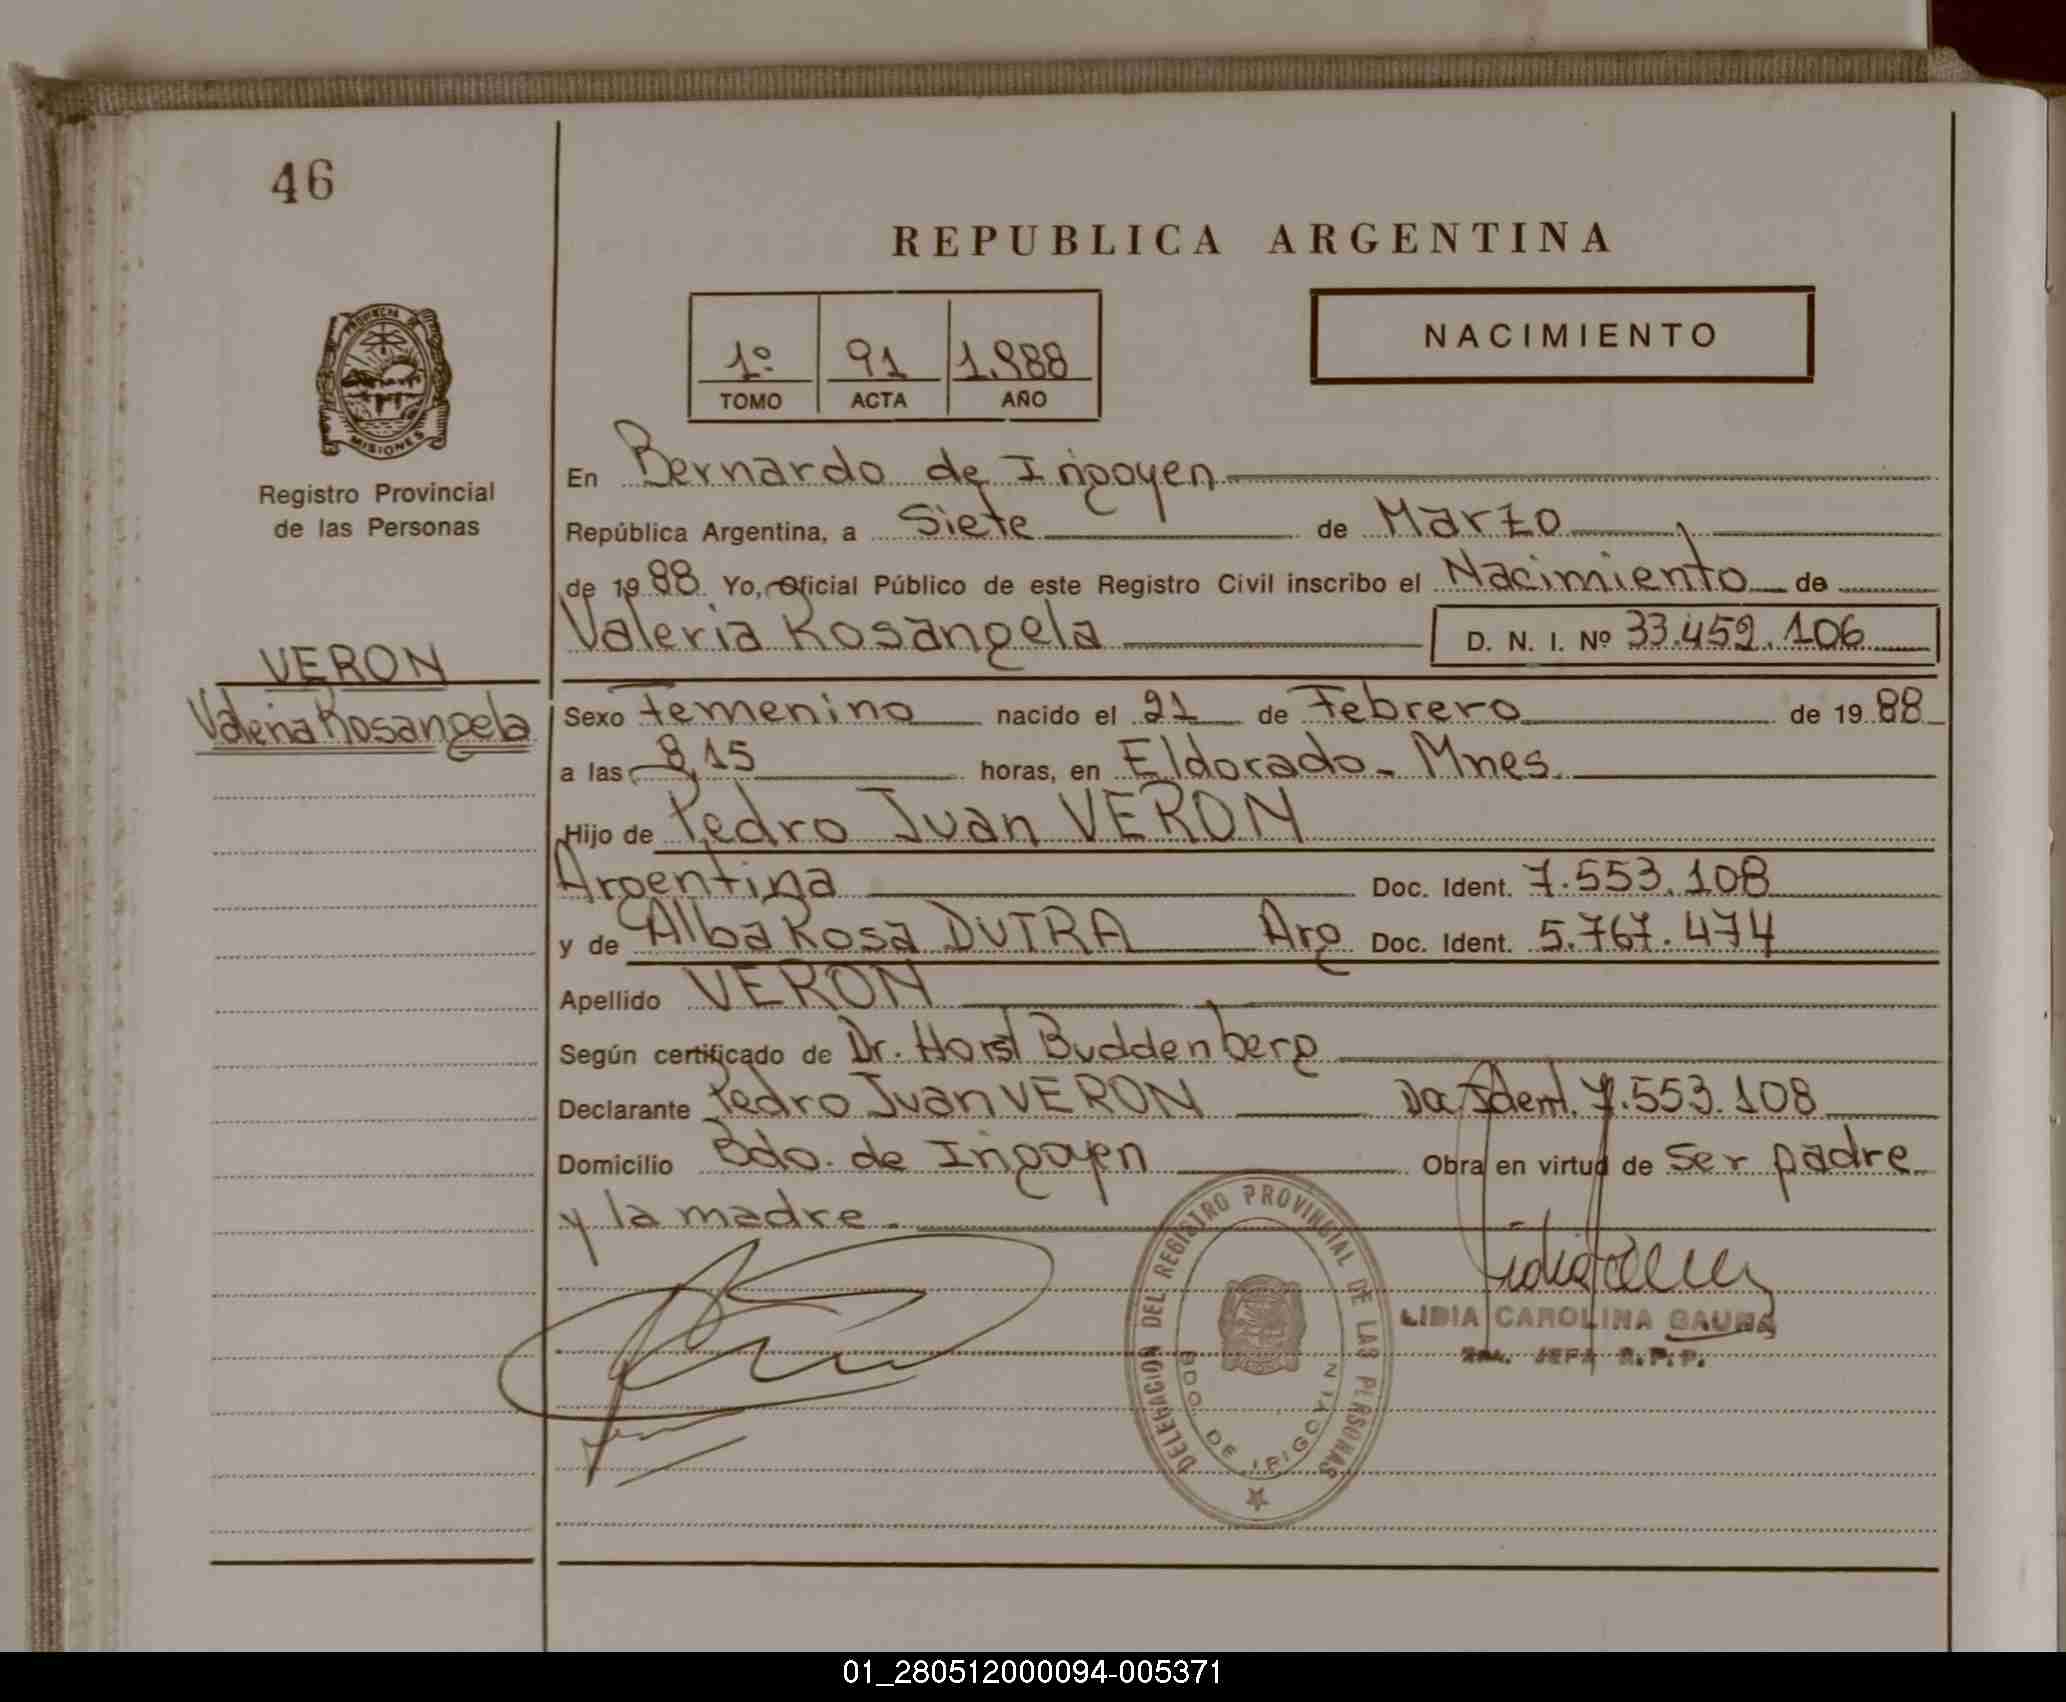 46
REPUBLICA ARGENTINA
1º 91 1.988
TOMO ACTA AÑO
NACIMIENTO
PROVINCIA DE
MISIONES
Registro Provincial
de las Personas
VERON
Valeria Rosangela
En Bernardo de Irigoyen
República Argentina, a Siete de Marzo
de 1988 Yo, Oficial Público de este Registro Civil inscribo el Nacimiento de
Valeria Rosangela D. N. I. Nº 33.452.106
Sexo Femenino nacido el 21 de Febrero de 1988
a las 8,15 horas, en Eldorado - Mnes.
Hijo de Pedro Juan VERON
Argentina Doc. Ident. 7.553.108
y de Alba Rosa DUTRA Arg Doc. Ident. 5.767.474
Apellido VERON
Según certificado de Dr. Horst Buddenberg
Declarante Pedro Juan VERON Doc Ident. 7.553.108
Domicilio Bdo. de Irigoyen Obra en virtud de ser padre
y la madre.
DELEGACION DEL REGISTRO PROVINCIAL DE LAS PERSONAS
BDO. DE IRIGOYEN
LIDIA CAROLINA
JEFA R.P.P.
01_280512000094-005371